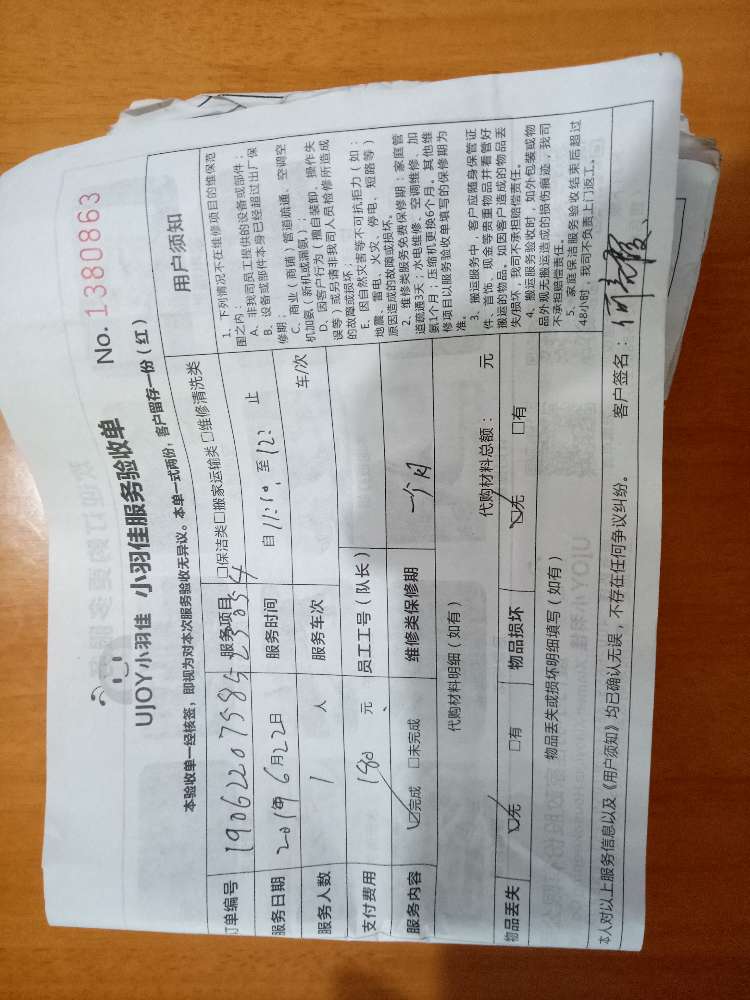 UJOY小羽佳 小羽佳服务验收单 No. 1380863
本验收单一经核签，即视为对本次服务验收无异议。本单一式两份，客户留存一份（红）
订单编号
服务项目 □保洁类□搬家运输类 □维修清洗类
服务日期 2019年 6月22日 服务时间 自 11:10 至 12: 止
服务人数 1 人 服务车次 车/次
支付费用 180 元 员工工号（队长）
服务内容 ☑完成 □未完成 维修类保修期 一个月
代购材料明细（如有） 代购材料总额： 元
物品丢失 ☑无 □有 物品损坏 ☑无 □有
物品丢失或损坏明细填写（如有）
用户须知
1、下列情况不在维修项目的维保范
围之内：
A、非我司员工提供的设备或部件；
B、设备或部件本身已经超过出厂保
修期；
C、商业（商铺）管道疏通、空调空
机加氨（新机或漏氨）；
D、因客户行为（擅自装卸、操作失
误等）或另请非我司人员检修所造成
的故障或损坏
E、因自然灾害等不可抗拒力（如：
地震、雷电、火灾、停电、短路等）
原因造成的故障或损坏。
2、维修类服务免费保修期：家庭管
道疏通3天；水电维修、空调维修、加
氨1个月；压缩机更换6个月。其他维
修项目以服务验收单填写的保修期为
准。
3、搬运服务中，客户应随身保管证
件、首饰、现金等贵重物品并看管好
搬运的物品，如因客户造成的物品丢
失/损坏，我司不承担赔偿责任。
4、搬运服务验收时，如外包装或物
品外观无搬运造成的损伤痕迹，我司
不承担赔偿责任。
5、家庭保洁服务验收结束后超过
48小时，我司不负责上门返工。
本人对以上服务信息以及《用户须知》均已确认无误，不存在任何争议纠纷。 客户签名：